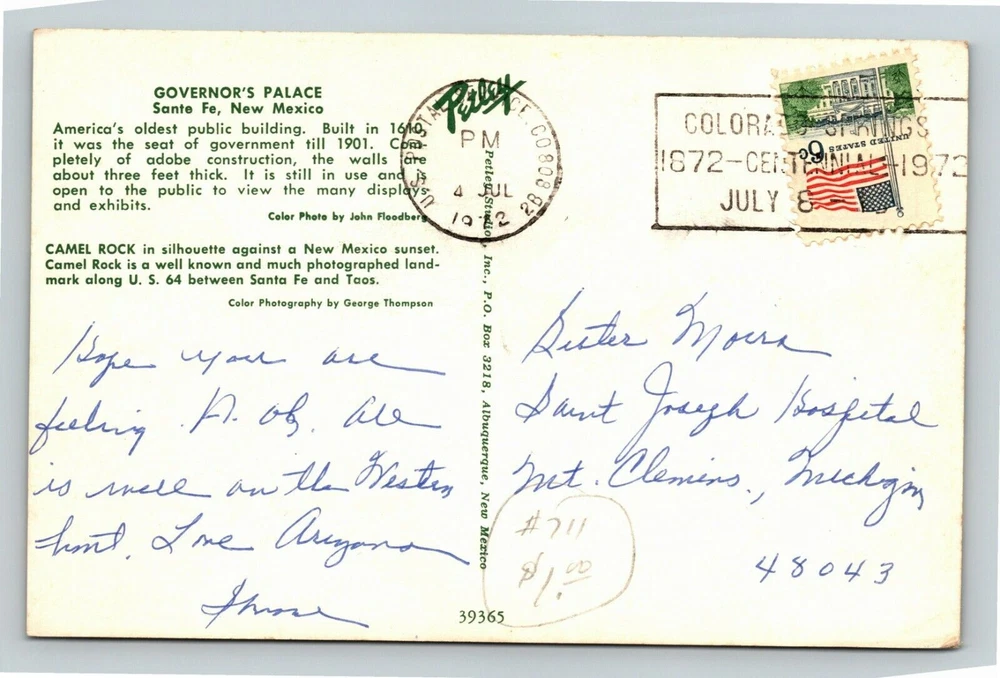 GOVERNOR'S PALACE
Santa Fe, New Mexico
America's oldest public building. Built in 1610,
it was the seat of government till 1901. Com-
pletely of adobe construction, the walls are
about three feet thick. It is still in use and is
open to the public to view the many displays
and exhibits.
Color Photo by John Floodberg
CAMEL ROCK in silhouette against a New Mexico sunset.
Camel Rock is a well known and much photographed land-
mark along U. S. 64 between Santa Fe and Taos.
Color Photography by George Thompson
Hope your are
feeling A. Ok. All
is well on the Western
front. Love Arizona
Petley
Petley Studio, Inc., P.O. Box 3218, Albuquerque, New Mexico
39365
U.S. POSTAL SERVICE, CO 808
PM
4 JUL
1972
2B
COLORADO SPRINGS
1872-CENTENNIAL-1972
JULY 8 -
UNITED STATES
6c
Sister Moira
Saint Joseph Hospital
Mt. Clemens., Michigan
48043